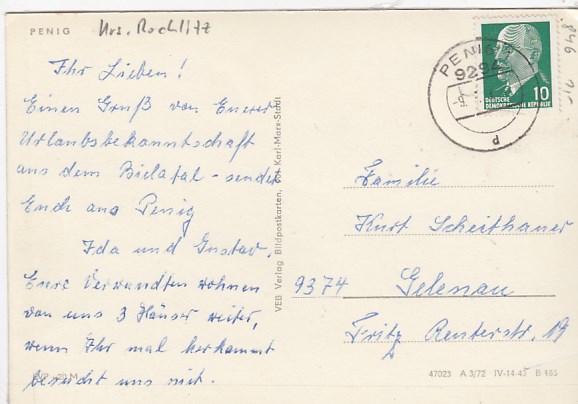 PENIG
Krs. Rochlitz
Ihr Lieben!
Einen Gruß von Euerer
Urlaubsbekanntschaft
aus dem Bielatal - sendet
Euch aus Penig
Ida und Gustav.
Eure Verwandten wohnen
von uns 3 Häuser weiter,
wenn Ihr mal herkommt
besucht uns mit.
VEB Verlag Bildpostkarten, Karl-Marx-Stadt
PENIG
9294
d
10
DEUTSCHE
DEMOKRATISCHE REPUBLIK
846
Familie
Kurt Scheithauer
9374 Gelenau
Fritz Reuterstr. 19
47023 A 3/72 IV-14-45 B 465